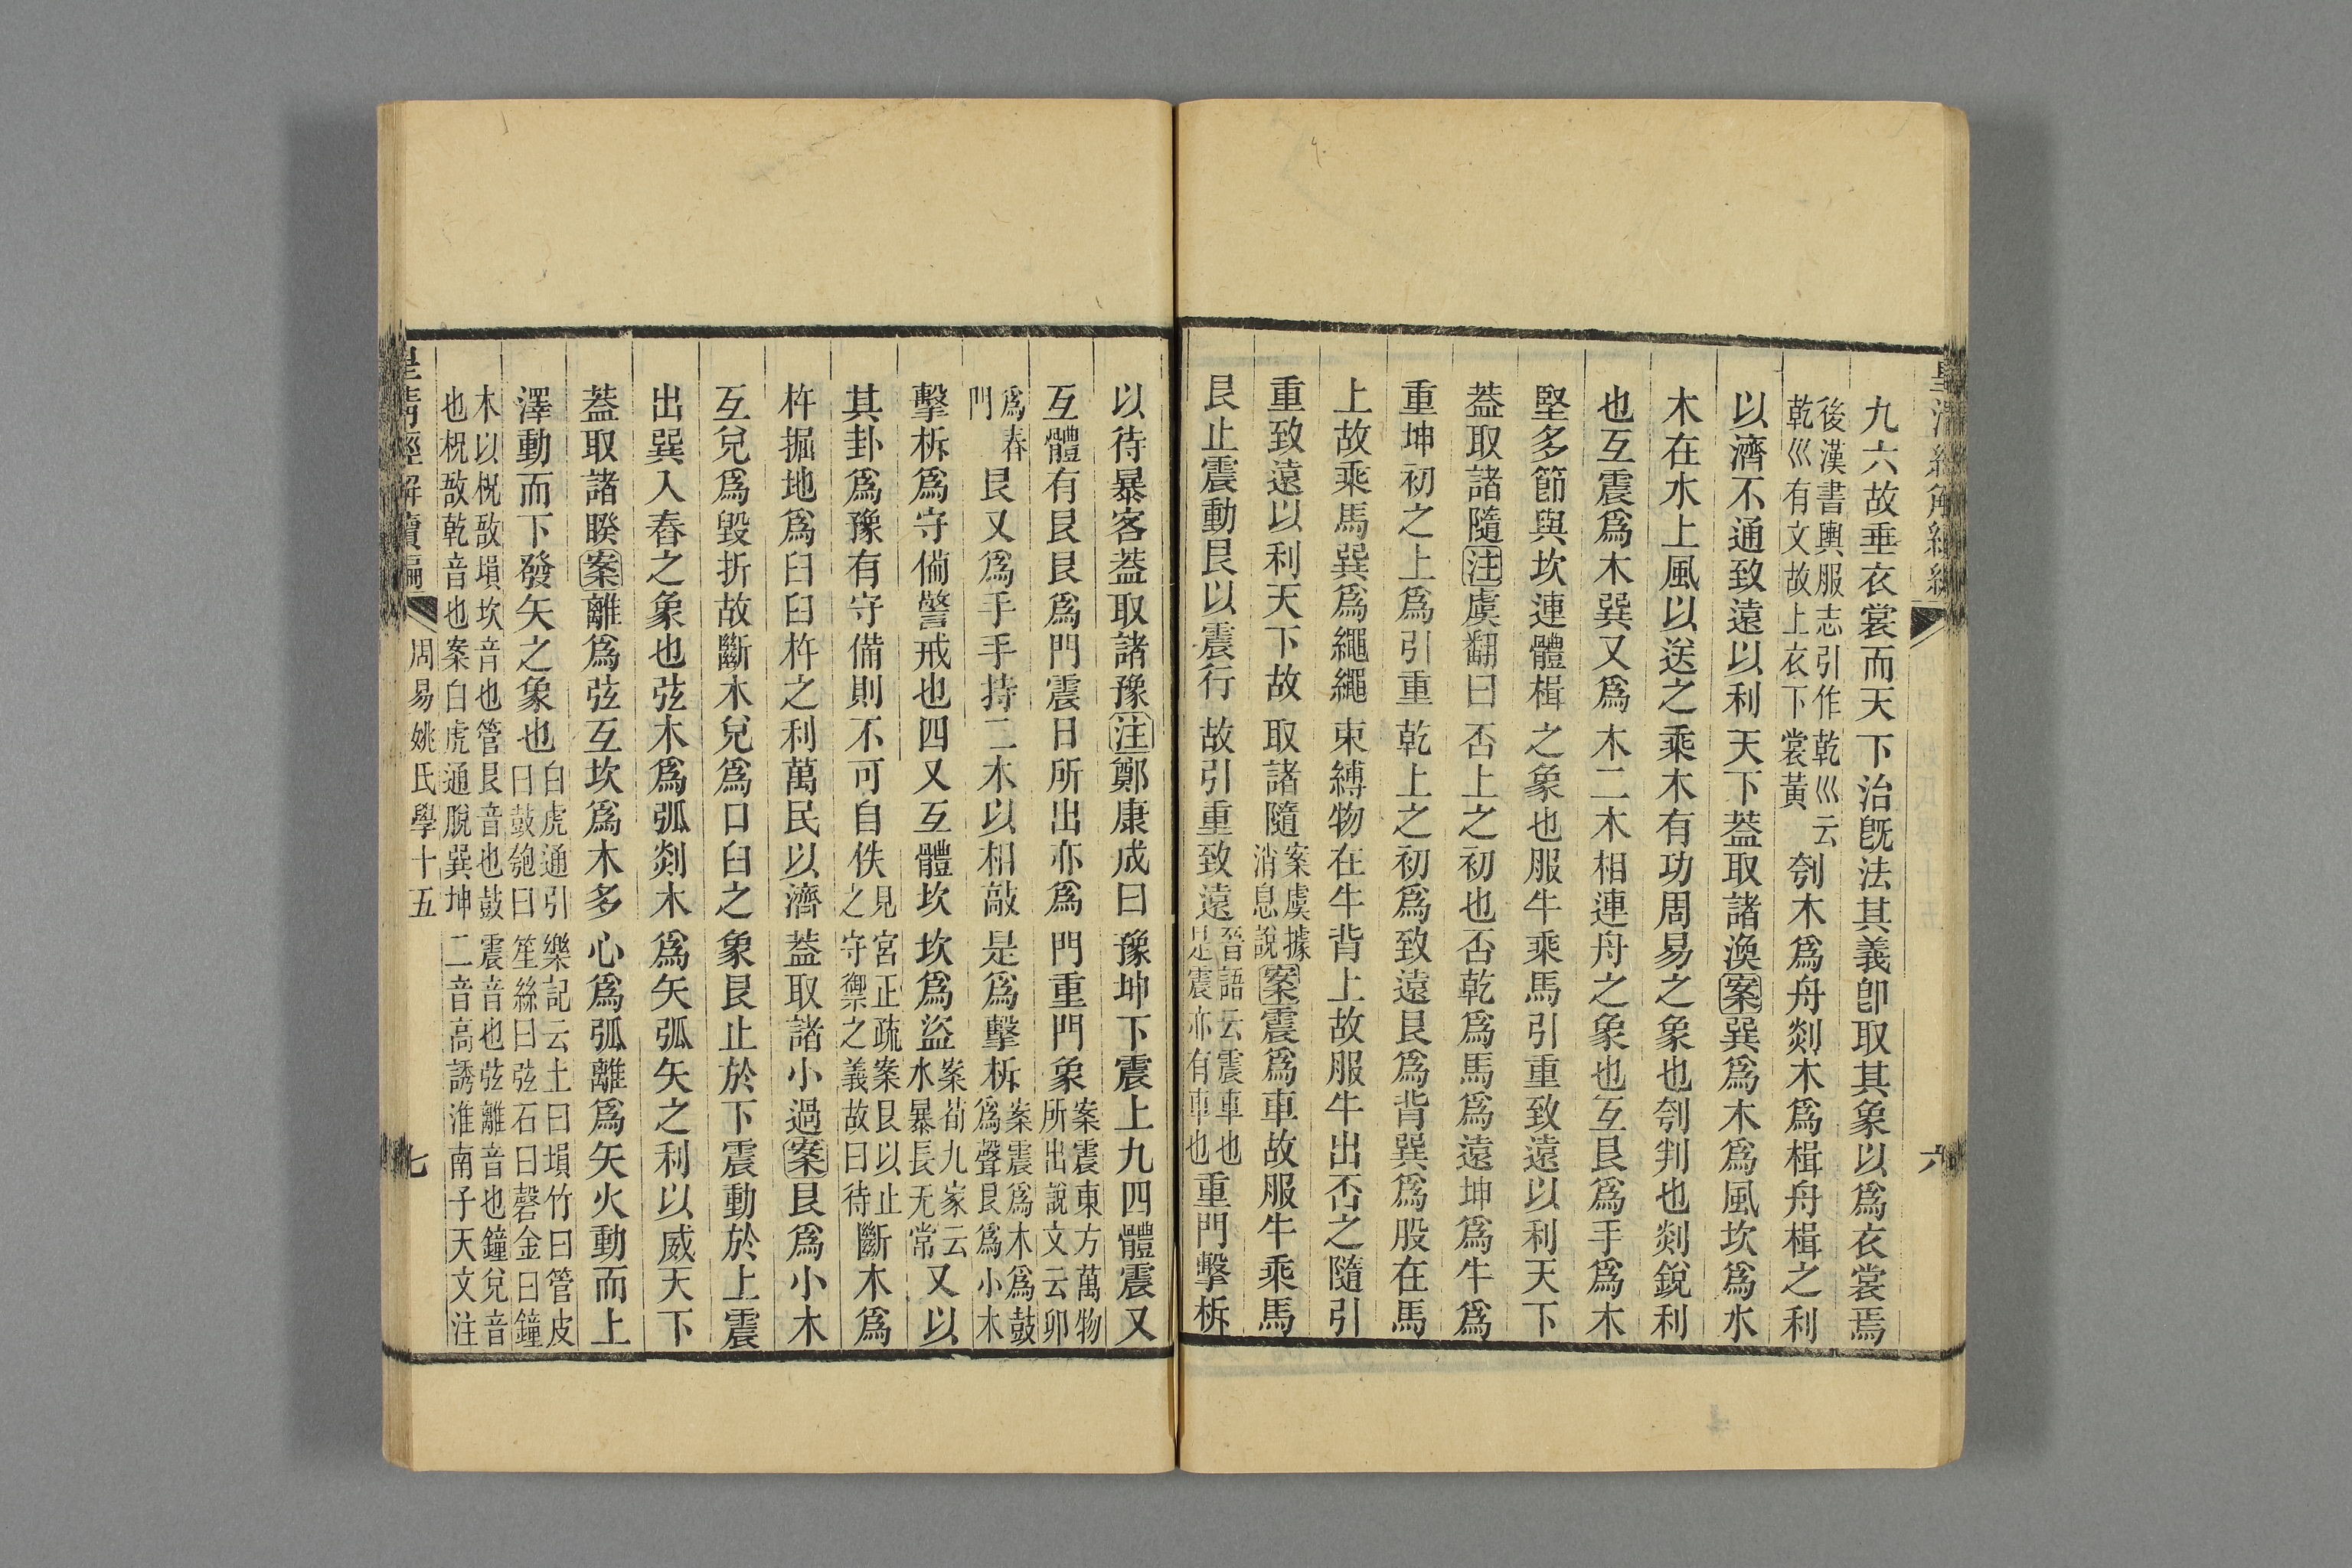 九六故垂衣裳而天下治旣法其義卽取其象以爲衣裳焉
後漢書輿服志引作乾巛云
乾巛有文故上衣下裳黃
刳木爲舟剡木爲楫舟楫之利
以濟不通致遠以利天下蓋取諸渙案巽爲木爲風坎爲水
木在水上風以送之乘木有功周易之象也刳判也剡銳利
也互震爲木巽又爲木二木相連舟之象也互艮爲手爲木
堅多節與坎連體楫之象也服牛乘馬引重致遠以利天下
蓋取諸隨注虞翻曰否上之初也否乾爲馬爲遠坤爲牛爲
重坤初之上爲引重乾上之初爲致遠艮爲背巽爲股在馬
上故乘馬巽爲繩繩束縛物在牛背上故服牛出否之隨引
重致遠以利天下故取諸隨
案虞據
消息說
案震爲車故服牛乘馬
艮止震動艮以震行故引重致遠
晉語云震車也
是震亦有車也
重門擊柝
六
以待暴客蓋取諸豫注鄭康成曰豫坤下震上九四體震又
互體有艮艮爲門震日所出亦爲門重門象
案震東方萬物
所出說文云卯
爲春
門
艮又爲手手持二木以相敲是爲擊柝
案震爲木爲鼓
爲聲艮爲小木
擊柝爲守備警戒也四又互體坎坎爲盜
案荀九家云
水暴長无常
又以
其卦爲豫有守備則不可自佚
見宮正疏案艮以止
之守禦之義故曰待
斷木爲
杵掘地爲臼臼杵之利萬民以濟蓋取諸小過案艮爲小木
互兌爲毀折故斷木兌爲口臼之象艮止於下震動於上震
出巽入舂之象也弦木爲弧剡木爲矢弧矢之利以威天下
蓋取諸睽案離爲弦互坎爲木多心爲弧離爲矢火動而上
澤動而下發矢之象也
白虎通引樂記云土曰塤竹曰管皮
曰鼓匏曰笙絲曰弦石曰磬金曰鐘
木以柷敔塤坎音也管艮音也鼓震音也弦離音也鐘兌音
也柷敔乾音也案白虎通脫巽坤二音高誘淮南子天文注
皇清經解續編
周易姚氏學十五
七